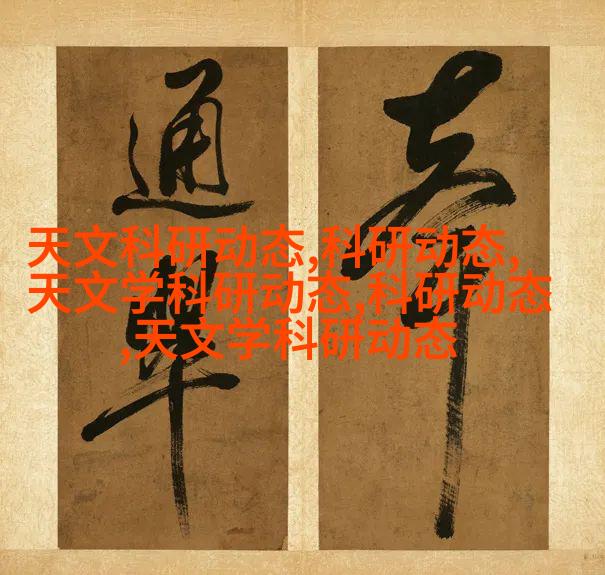 通
天文科研动态,科研动态,
天文学科研动态,科研动态
,天文学科研动态